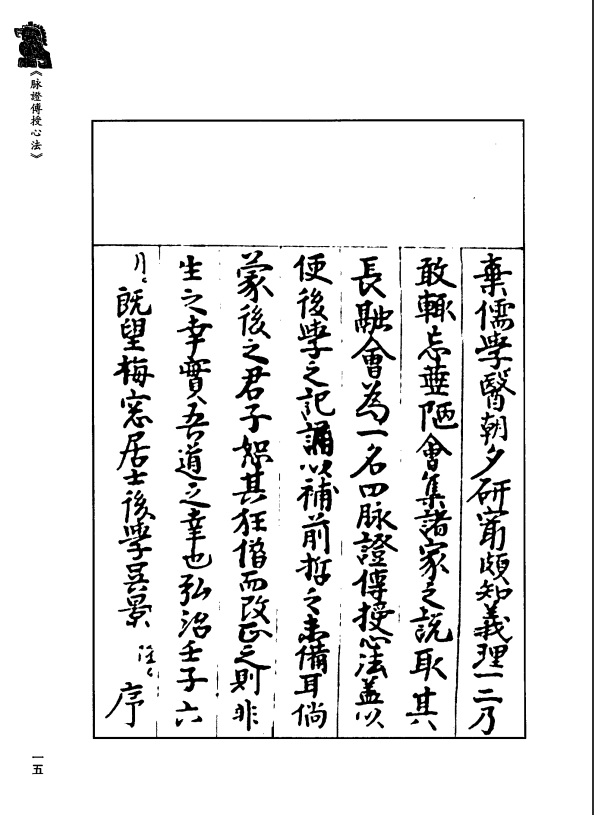 《脉證傳授心法》
棄儒學醫朝夕研窮頗知義理一二乃
敢輙忘蕪陋會集諸家之説取其
長融會為一名曰脉證傳授心法盖以
便後學之記誦以補前哲之未備耳倘
蒙後之君子恕其狂僣而改正之則非
生之幸實吾道之幸也弘治壬子六
月既望梅窓居士後學吳景序
一五